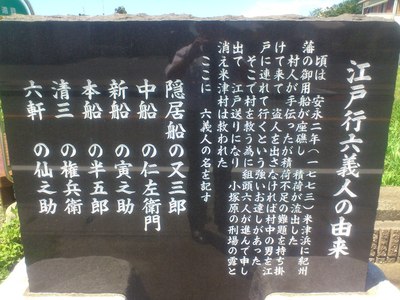 江戸行六義人の由来
頃は 安永二年(一七七三)米津浜に紀州
藩の御用船が座礁し 積荷が流出した
村人が手伝ったが積荷不足の難題を持ち掛
けて来て 盗人を出さなければ村中の男を江
戸に連れて行くという強いお達しがあった
そこで村を救う為に組頭六人が進んで申し
出て 江戸送りになり 小塚原の刑場の露と
消え米津村は救われた
ここに 六義人の名を記す
隠居船の又三郎
中船 の仁左衛門
新船 の寅之助
本船 の半五郎
清三 の権兵衛
六軒 の仙之助